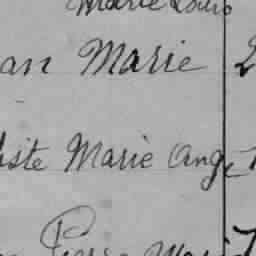 Marie Louis
an Marie 2
iste Marie Ange
Pierre Marie